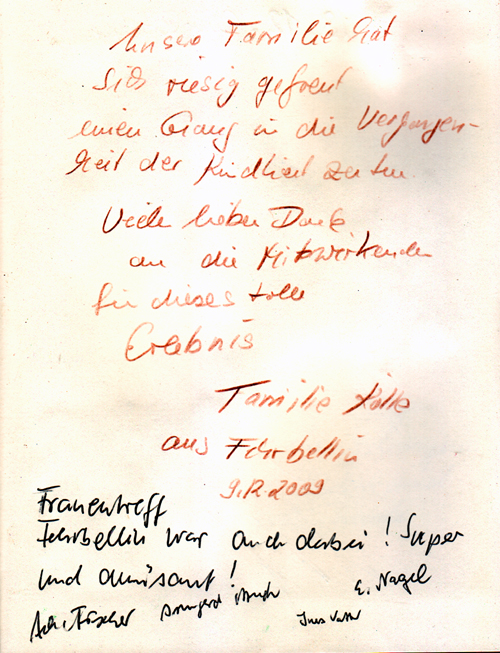 Unsere Familie hat
sich riesig gefreut
einen Gang in die Vergangen-
heit der Kindheit zu tun.
Viele lieben Dank
an die Mitwirkenden
für dieses tolle
Erlebnis
Familie
aus Fehrbellin
9.12.2009
Frauentreff
Fehrbellin war auch dabei! Super
und amüsant!
E. Nagel
Fischer